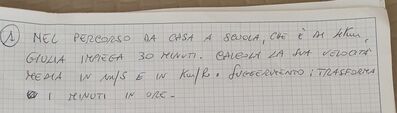 1 NEL PERCORSO DA CASA A SCUOLA, CHE È DI 4Km,
GIULIA IMPIEGA 30 MINUTI. CALCOLA LA SUA VELOCITÀ
MEDIA IN m/S E IN Km/h. SUGGERIMENTO: TRASFORMA
I MINUTI IN ORE.